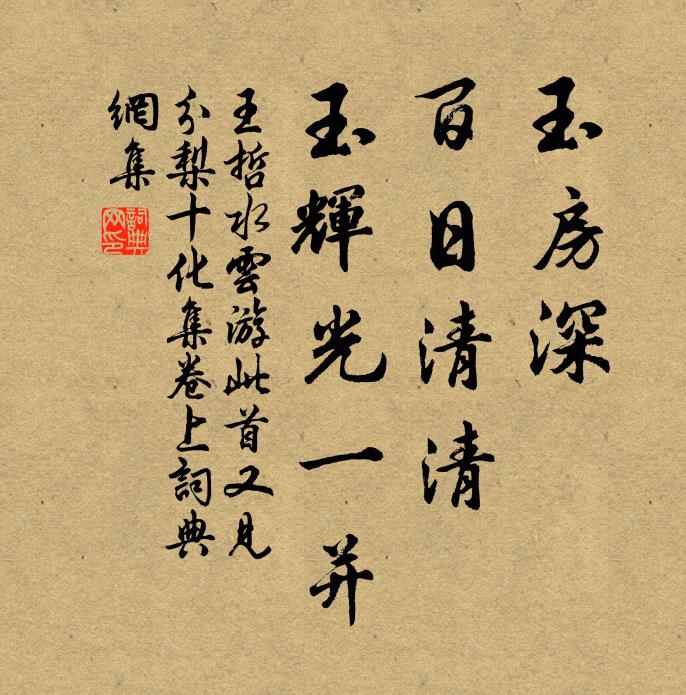 玉房深
百日清清
玉輝光一并
王哲水雲游此首又見
分梨十化集卷上詞典
網集
詞典網印